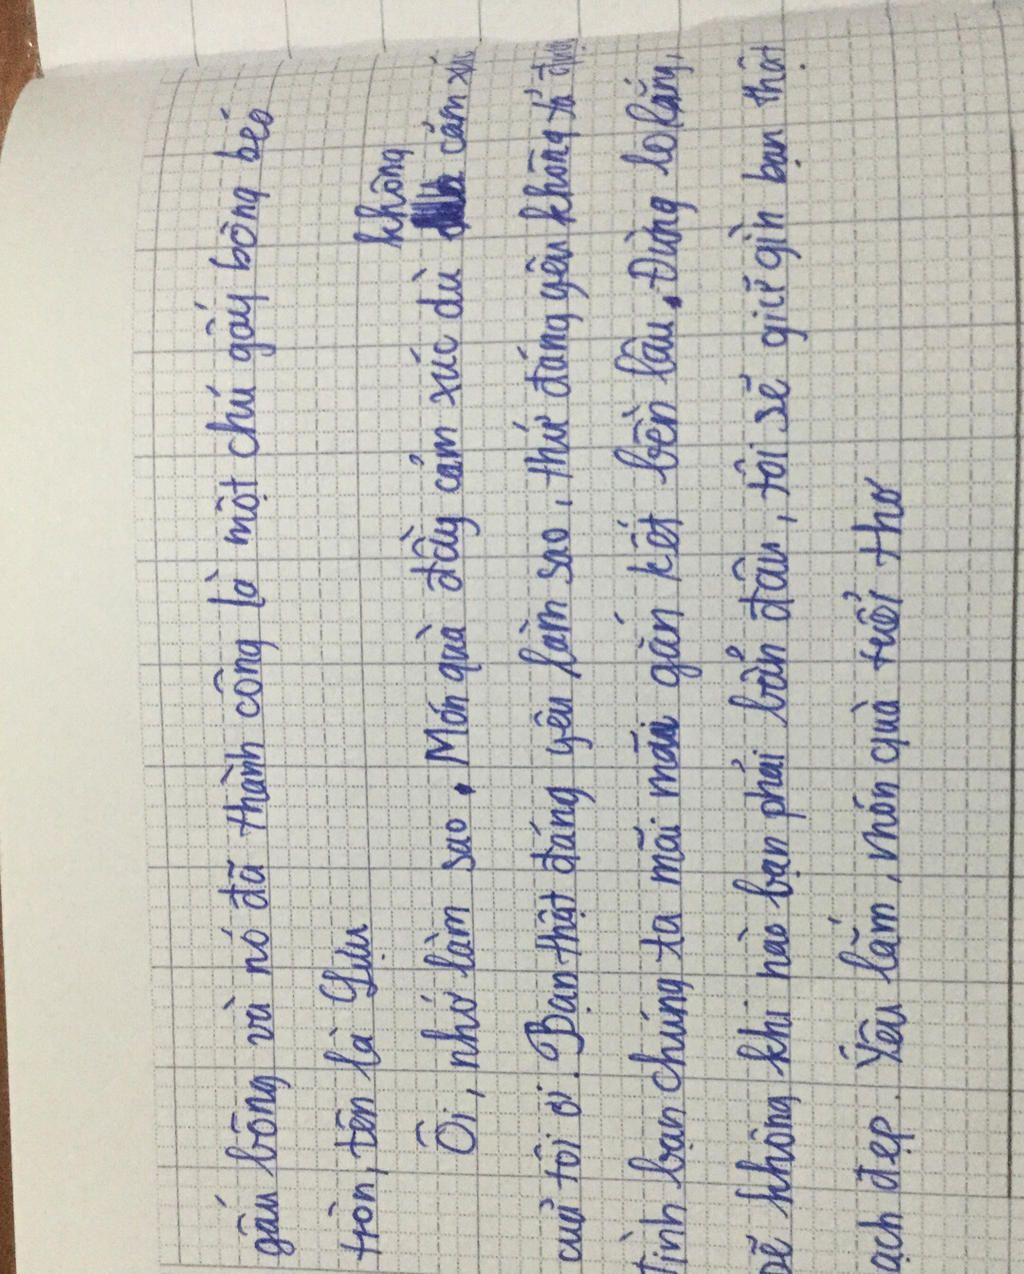 gấu bông và nó đã thành công là một chú gấy bông béo
tròn, tên là Lựu
không
Ôi, nhớ làm sao. Món quà đầy cảm xúc dù cảm xúc
cuả tôi ơi. Bạn thật đáng yêu làm sao, thứ đáng yêu không tả được
Tình bạn chúng ta mãi mãi gắn kết bền lâu. Đừng lo lắng,
sẽ không khi nào bạn phải bẩn đâu, tôi sẽ giữ gìn bạn thật
ạch đẹp. Yêu lắm, món quà tuổi thơ